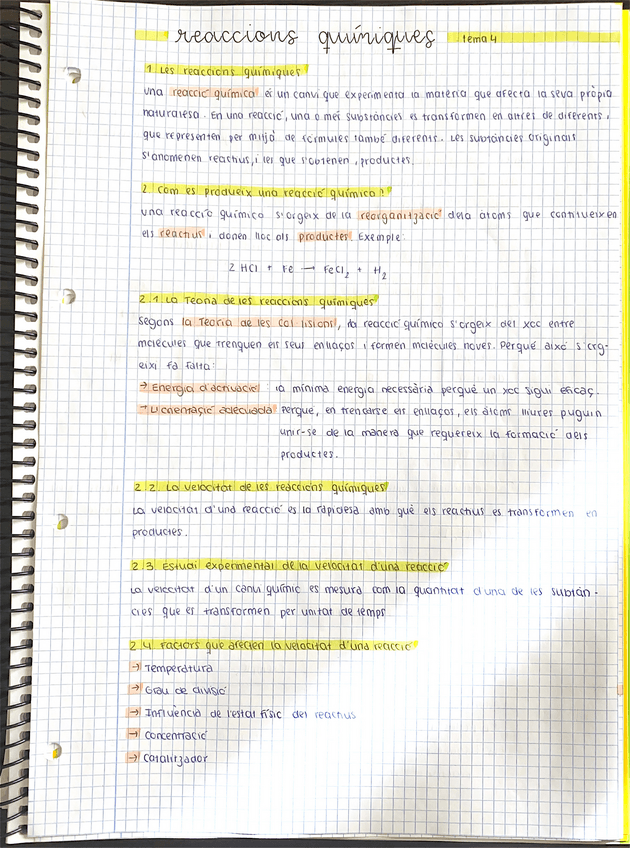 reaccions químiques tema 4
1 Les reaccions químiques
Una reacció química és un canvi que experimenta la matèria que afecta la seva pròpia
naturalesa. En una reacció, una o més substàncies es transformen en altres de diferents,
que representen per mitjà de fórmules també diferents. Les substàncies originals
s'anomenen reactius, i les que s'obtenen, productes.
2. Com es produeix una reacció química?
Una reacció química s'orgeix de la reorganització dela àtoms que constitueixen
els reactius i donen lloc als productes. Exemple:
2 HCl + Fe → FeCl2 + H2
2.1. La Teoria de les reaccions químiques
Segons la Teoria de les col·lisions, la reacció química s'orgeix del xoc entre
molècules que trenquen els seus enllaços i formen molècules noves. Perquè això s'org-
eixi fa falta:
→ Energia d'activació: la mínima energia necessària perquè un xoc sigui eficaç.
→ L'orientació adecuada Perque, en trencarse els enllaços, els àtoms lliures puguin
unir-se de la manera que requereix la formació dels
productes.
2.2. La velocitat de les reaccions químiques
La velocitat d'una reacció és la rapidesa amb què els reactius es transformen en
productes.
2.3 Estudi experimental de la velocitat d'una reacció
La velocitat d'un canvi químic es mesura com la quantitat d'una de les substàn-
cies que es transformen per unitat de temps
2.4 Factors que afecten la velocitat d'una reacció
→ Temperatura
→ Grau de divisió
→ Influència de l'estat físic del reactius
→ Concentració
→ Catalitzador